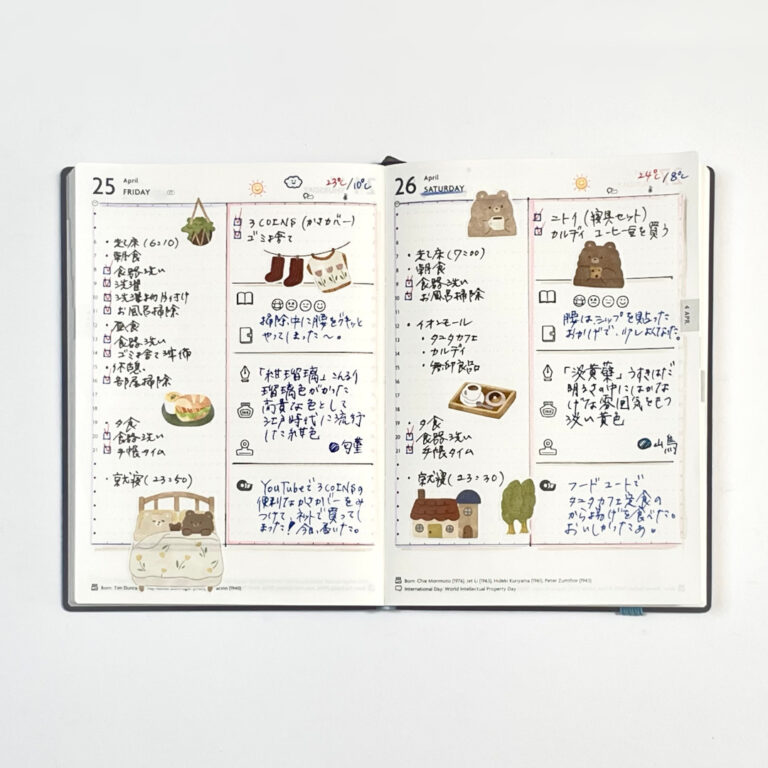 25
April
FRIDAY
23℃/10℃
・起床(6:10)
・朝食
食器洗い
洗濯
洗濯物片付け
お風呂掃除
・昼食
食器洗い
ゴミ捨て準備
・休憩
部屋掃除
・夕食
食器洗い
手帳タイム
・就寝(23:50)
3COINS(かさカバー)
ゴミ捨て
掃除中に腰をギクッと
やってしまった〜。
「紺瑠璃」こんるり
瑠璃色がかった
高貴な色として
江戸時代に流行
した紺色
YouTubeで3COINSの
便利なかさカバーをみ
つけて、ネットで買ってし
まった!今日届いた。
26
April
SATURDAY
24℃/8℃
・起床(7:00)
・朝食
食器洗い
お風呂掃除
・イオンモール
・タニタカフェ
・カルディ
・無印良品
・夕食
食器洗い
手帳タイム
・就寝(23:30)
ニトリ(寝具セット)
カルディ コーヒー豆を買う
腰はシップを貼った
おかげで、少しよくなった。
「淡黄蘗」うすきはだ
明るさの中にはかな
げな雰囲気をもつ
淡い黄色
山鳥
フードコートで
タニタカフェ定食の
からあげを食べた。
おいしかったぁ。
4 APR
Born: Chie Morimoto (1976), Jet Li (1963), Hideki Kuriyama (1961), Peter Zumthor (1943)
International Day: World Intellectual Property Day